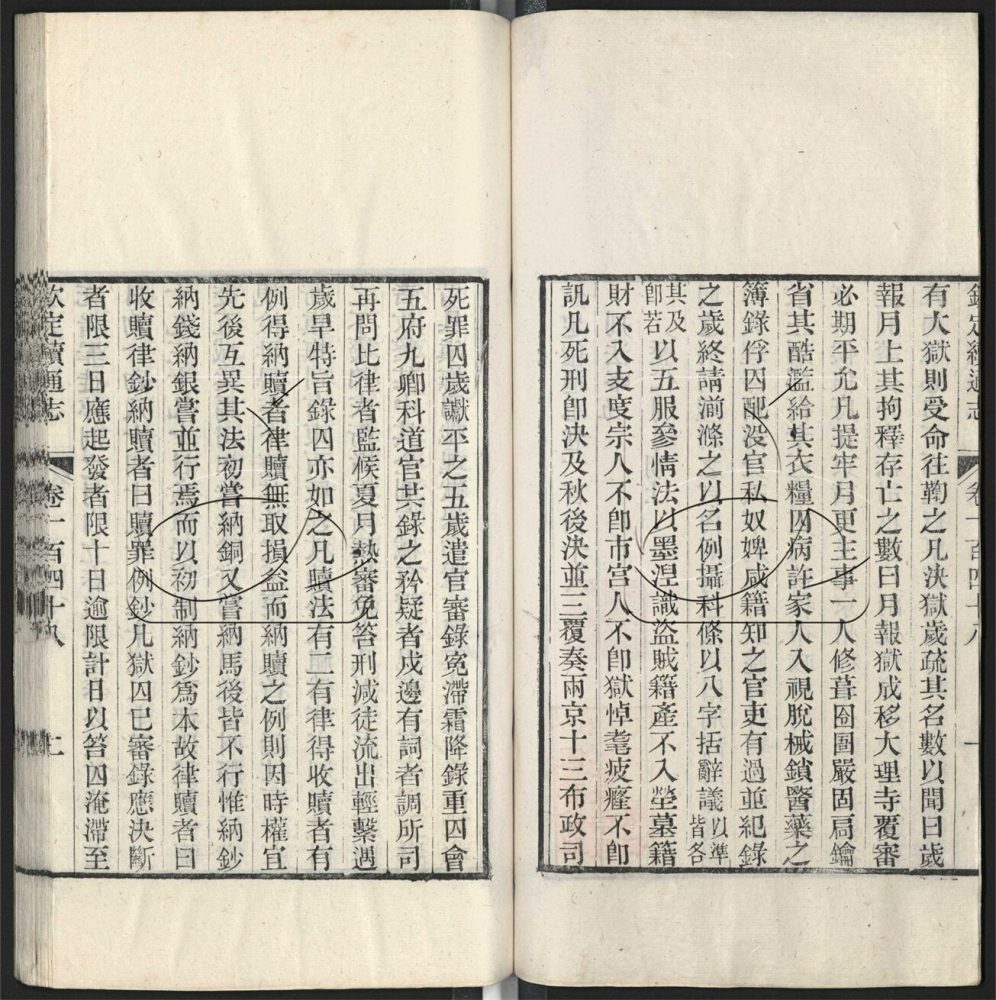 欽定續通志
卷一百四十八
有大獄則受命往鞫之凡決獄歲疏其名數以聞曰歲
報月上其拘釋存亡之數曰月報獄成移大理寺覆審
必期平允凡提牢月更主事一人修葺囹圄嚴固扃鑰
省其酷濫給其衣糧囚病許家人入視脫械鎖醫藥之
簿錄俘囚配没官私奴婢咸籍知之官吏有過並紀錄
之歲終請湔滌之以名例攝科條以八字括辭議以準皆各
其及即若以五服參情法以墨湼識盜賊籍產不入塋墓籍
財不入支度宗人不即市宮人不即獄悼耄疲癃不即
訊凡死刑即決及秋後決並三覆奏兩京十三布政司
死罪囚歲讞平之五歲遣官審錄冤滯霜降錄重囚會
五府九卿科道官共錄之矜疑者戍邊有詞者調所司
再問比律者監候夏月熱審免笞刑減徒流出輕繫遇
歲旱特旨錄囚亦如之凡贖法有二有律得收贖者有
例得納贖者律贖無取損益而納贖之例則因時權宜
先後互異其法初嘗納銅又嘗納馬後皆不行惟納鈔
納錢納銀嘗並行焉而以初制納鈔爲本故律贖者曰
收贖律鈔納贖者曰贖罪例鈔凡獄囚已審錄應決斷
者限三日應起發者限十日逾限計日以笞囚淹滯至
欽定續通志
卷一百四十八